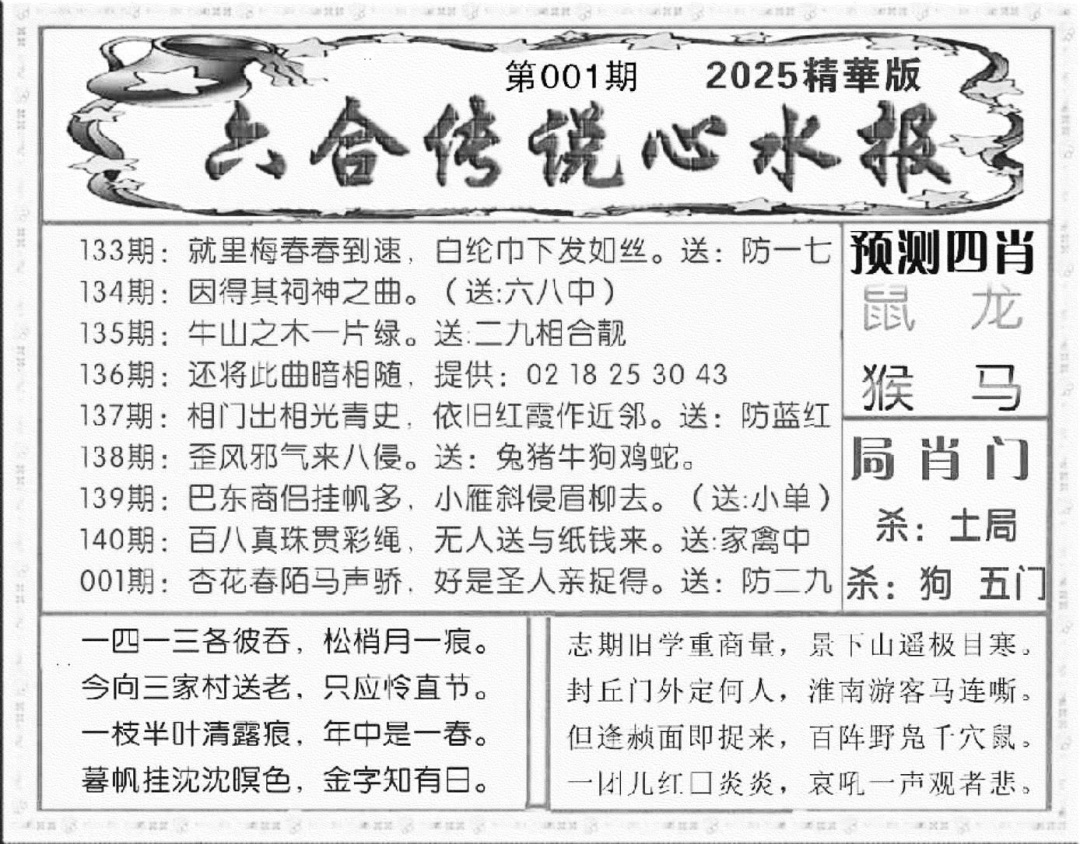 第001期 2025精華版
六合传说心水报
133期：就里梅春春到速，白纶巾下发如丝。送：防一七
134期：因得其祠神之曲。（送:六八中）
135期：牛山之木一片绿。送:二九相合靓
136期：还将此曲暗相随，提供：02 18 25 30 43
137期：相门出相光青史，依旧红霞作近邻。送：防蓝红
138期：歪风邪气来八侵。送：兔猪牛狗鸡蛇。
139期：巴东商侣挂帆多，小雁斜侵眉柳去。（送:小单）
140期：百八真珠贯彩绳，无人送与纸钱来。送:家禽中
001期：杏花春陌马声骄，好是圣人亲捉得。送：防二九
预测四肖
鼠 龙
猴 马
局肖门
杀：土局
杀：狗 五门
一四一三各彼吞，松梢月一痕。
今向三家村送老，只应怜直节。
一枝半叶清露痕，年中是一春。
暮帆挂沈沈暝色，金字知有日。
志期旧学重商量，景下山遥极目寒。
封丘门外定何人，淮南游客马连嘶。
但逢赪面即捉来，百阵野凫千穴鼠。
一团儿红口炎炎，哀吼一声观者悲。